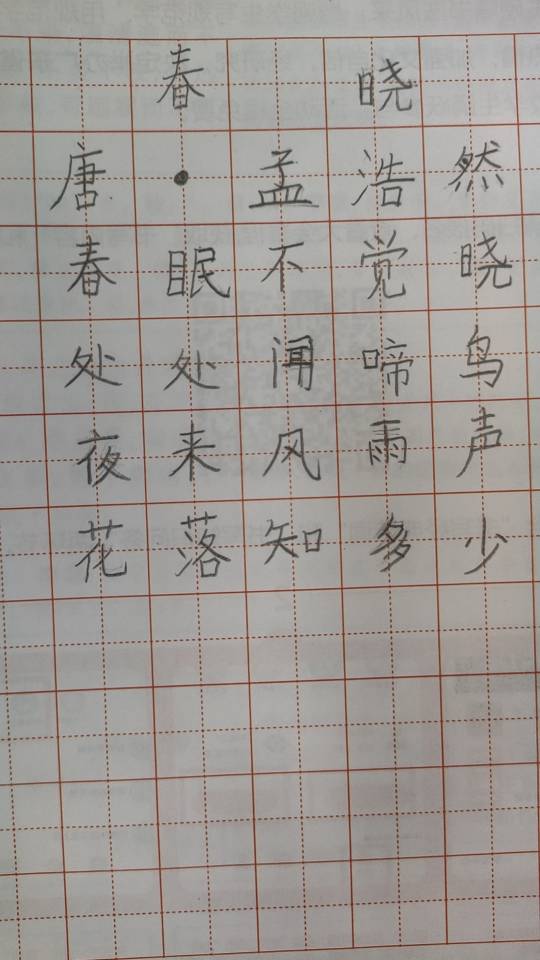 春 晓
唐·孟浩然
春眠不觉晓
处处闻啼鸟
夜来风雨声
花落知多少